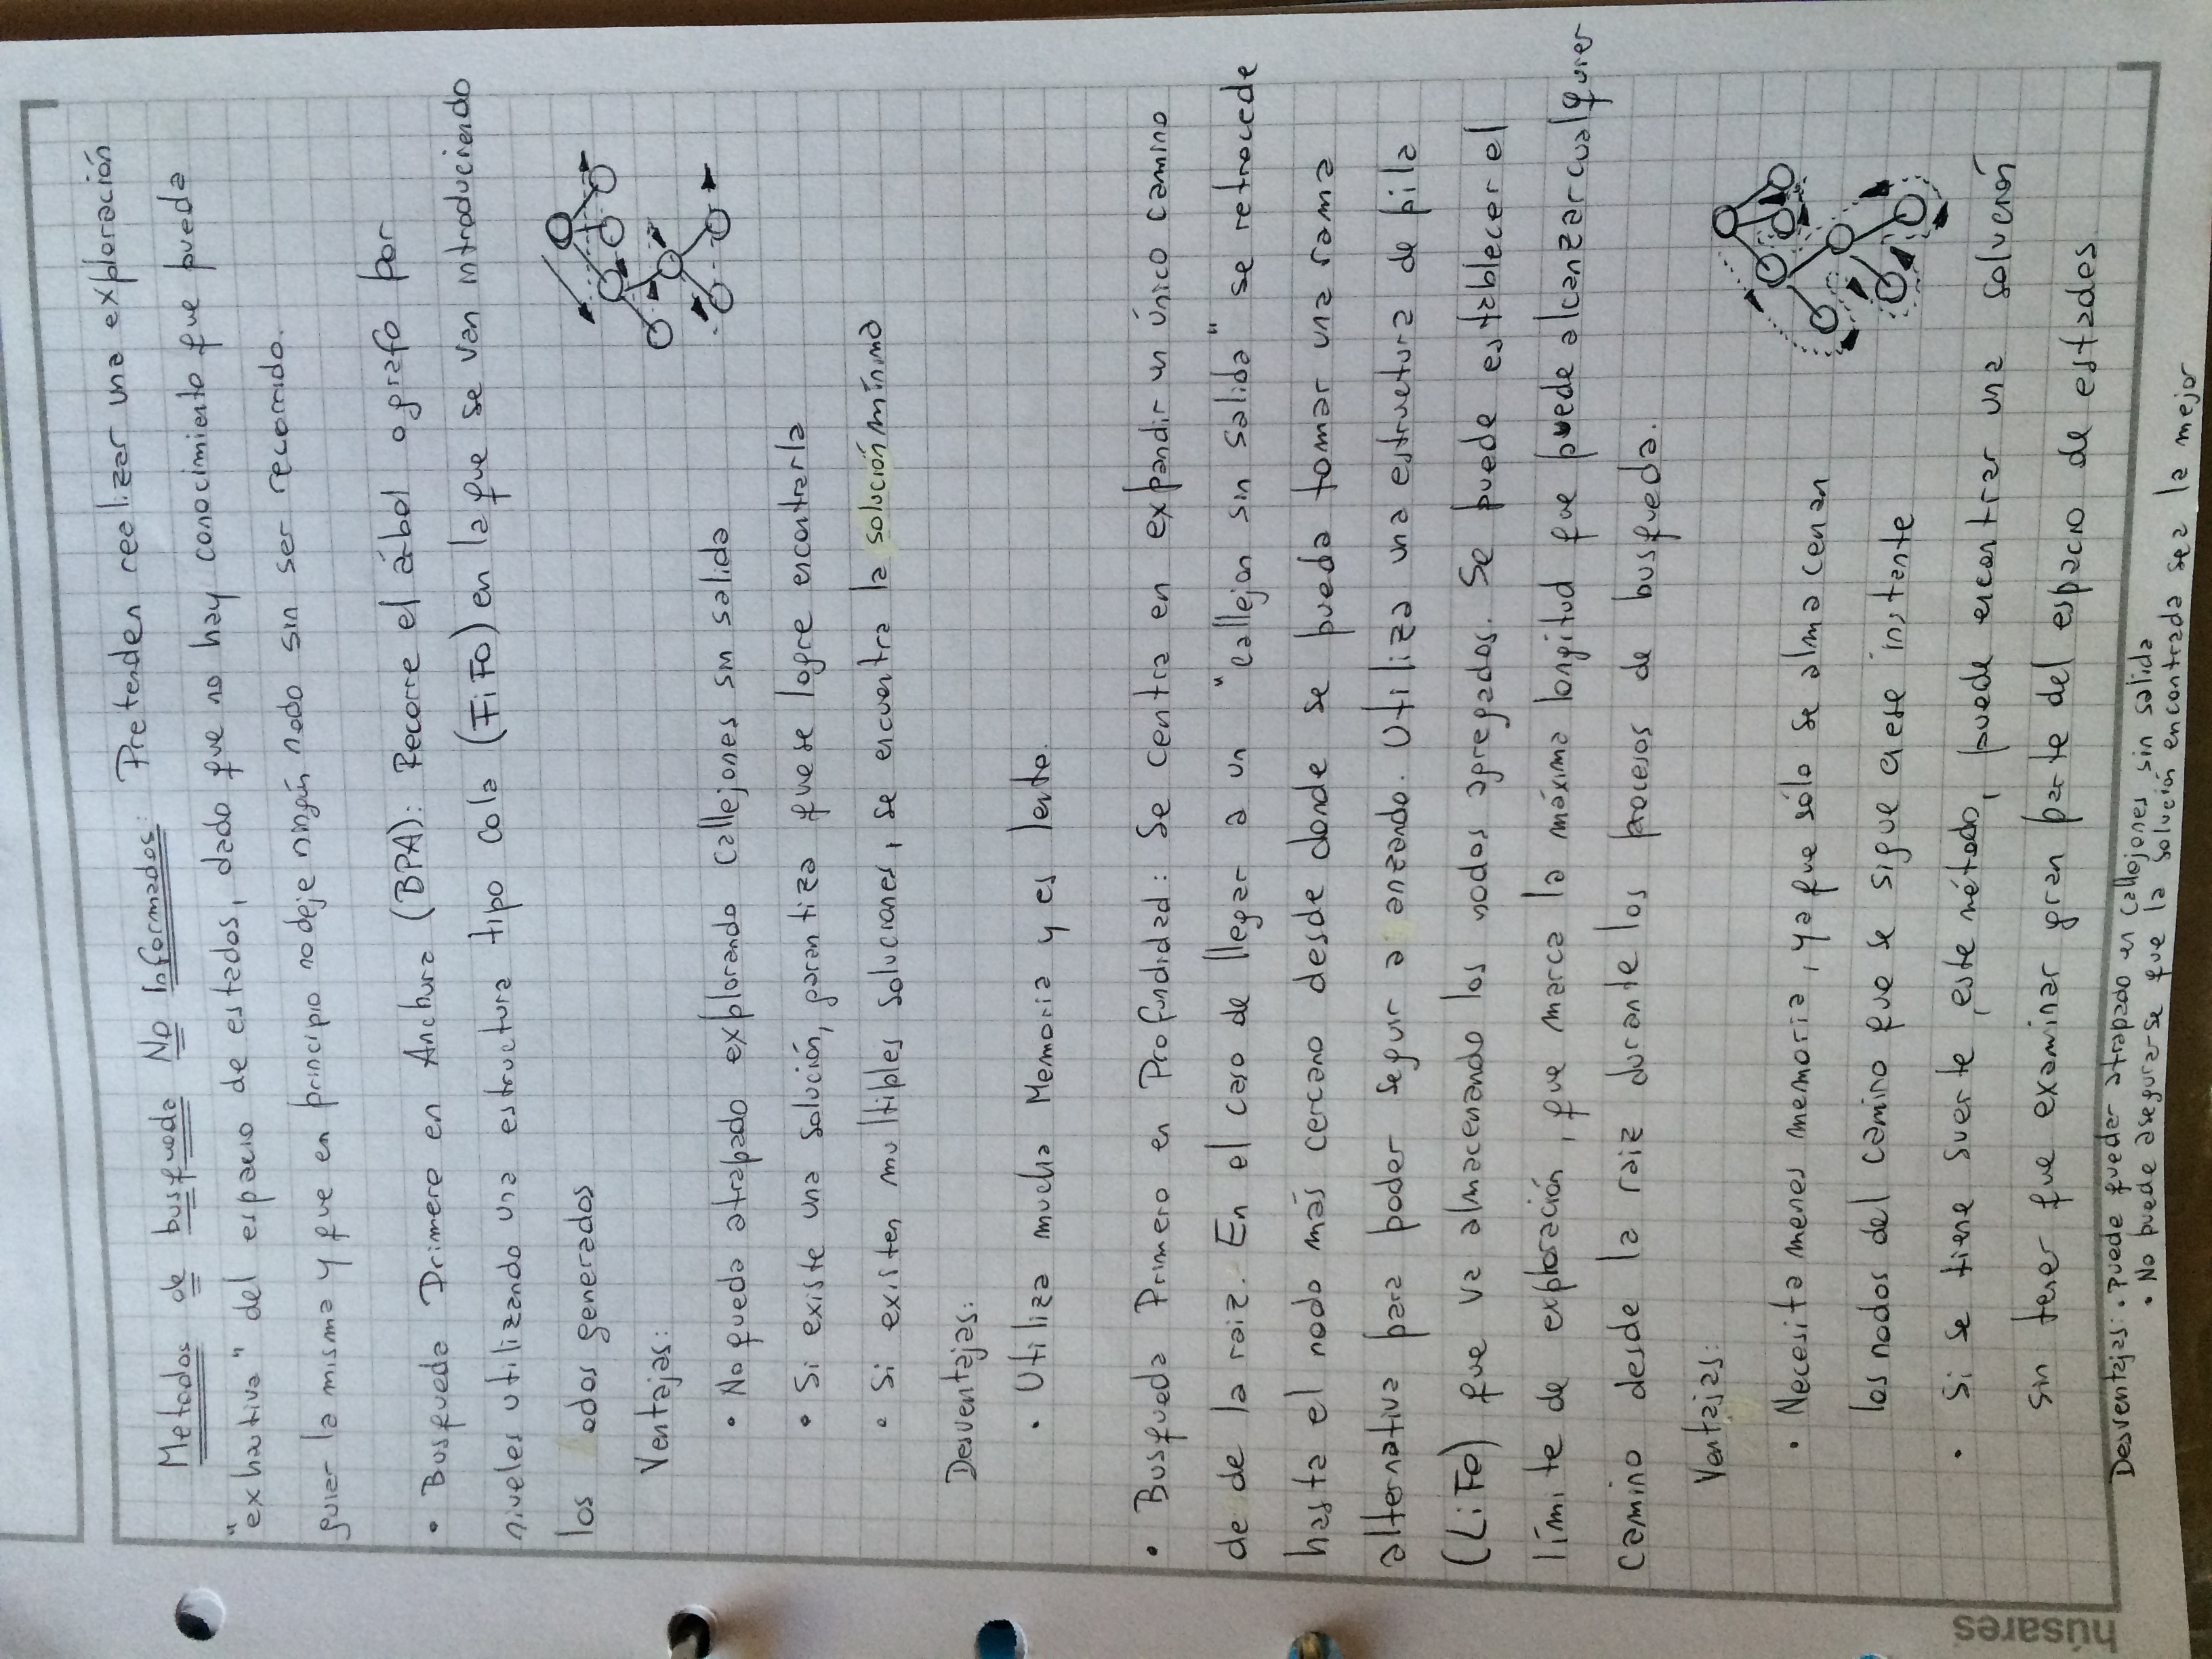 Metodos de busqueda No Informados: Pretenden realizar una exploración
"exhautiva" del espacio de estados, dado que no hay conocimiento que pueda
guier la misma y que en principio no deje ningún nodo sin ser recorrido.
• Busqueda Primero en Anchura (BPA): Recorre el árbol o grafo por
niveles utilizando una estructura tipo cola (FiFO) en la que se van introduciendo
los odos generados
Ventajas:
• No queda atrapado explorando callejones sin salida
• Si existe una solución, garantiza que se logre encontrarla
• Si existen multiples soluciones, se encuentra la solución mínima
Desventajas:
• Utiliza mucha Memoria y es lento.
• Busqueda Primero en Profundidad: Se centra en expandir un único camino
de de la raiz. En el caso de llegar a un "callejon sin salida" se retrocede
hasta el nodo más cercano desde donde se pueda tomar una rama
alternativa para poder seguir a anzando. Utiliza una estructura de pila
(LiFo) que va almacenando los nodos agregados. Se puede establecer el
límite de exploración, que marca la máxima longitud que puede alcanzar cualquier
camino desde la raiz durante los procesos de busqueda.
Ventajas:
• Necesita menos memoria, ya que sólo se almacenan
los nodos del camino que se sigue en ese instante
• Si se tiene suerte, este método, puede encontrar una solución
sin tener que examinar gran parte del espacio de estados.
Desventajas: • Puede quedar atrapado en callejones sin salida
• No puede asegurarse que la solución encontrada sea la mejor
húsares